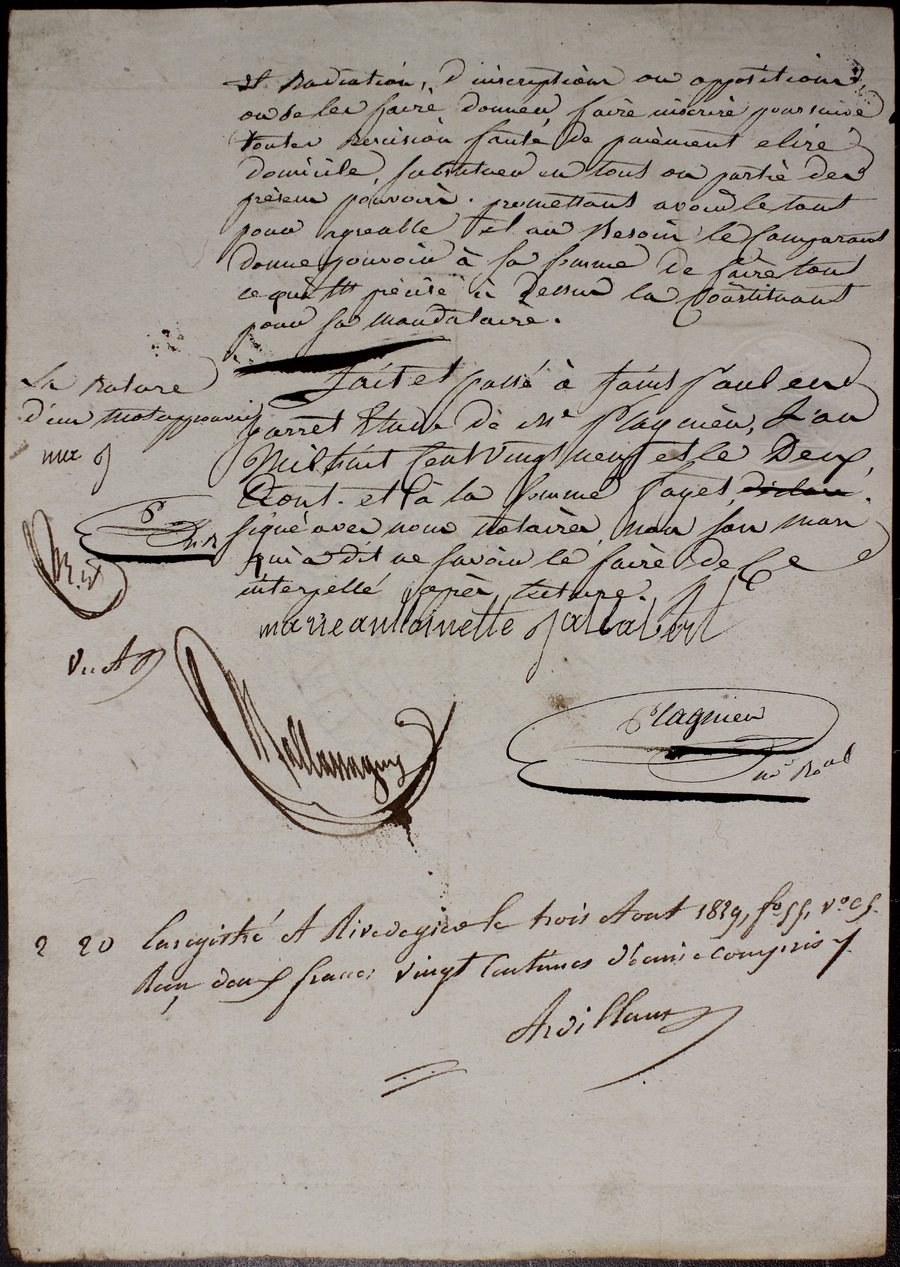 et Radiation, d'inscriptions ou oppositions,
ou de les faire donner, faire inscrire poursuivre
toutes faute de paiement elire
domicile, substituer en tout ou partie des
présens pouvoirs. promettant avoir le tout
pour agreable Et au Besoin le Comparant
donne pouvoir à sa femme de faire tout
ce qui est précisé ci dessus la Constituant
pour sa mandataire.
Fait et passé à Saint Paul en
Jarret Etude de Me Plagnieu, L'an
Mil huit Cent vingt neuf et le Deux
Aout. et à la femme Fayet, déclaré
signé avec nous notaires, non son mari
qui a dit ne savoir le faire de Ce
interpellé après lecture.
La Rature
d'un mot approuvée
P
N. R.
marie antoinette Jallabert
Plagnieu
nre Royal
2 20 Enregistré A Rivedegier le trois Aout 1829, fo 55, vo c 5.
Reçu deux francs vingt Centimes décime compris